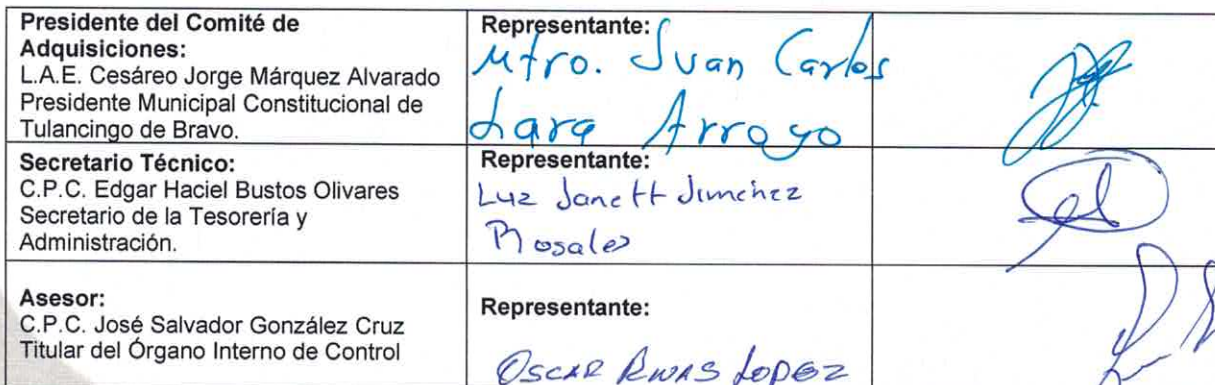 Presidente del Comité de
Adquisiciones:
L.A.E. Cesáreo Jorge Márquez Alvarado
Presidente Municipal Constitucional de
Tulancingo de Bravo.
Representante:
Mtro. Juan Carlos
Lara Arroyo
Secretario Técnico:
C.P.C. Edgar Haciel Bustos Olivares
Secretario de la Tesorería y
Administración.
Representante:
Luz Janett Jimenez
Rosales
Asesor:
C.P.C. José Salvador González Cruz
Titular del Órgano Interno de Control
Representante:
OSCAR RIVAS LOPEZ